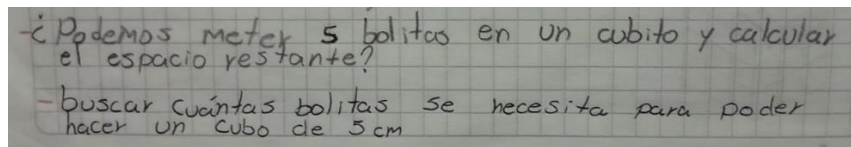 -¿Podemos meter 5 bolitas en un cubito y calcular
el espacio restante?
-buscar cuántas bolitas se necesita para poder
hacer un cubo de 5 cm